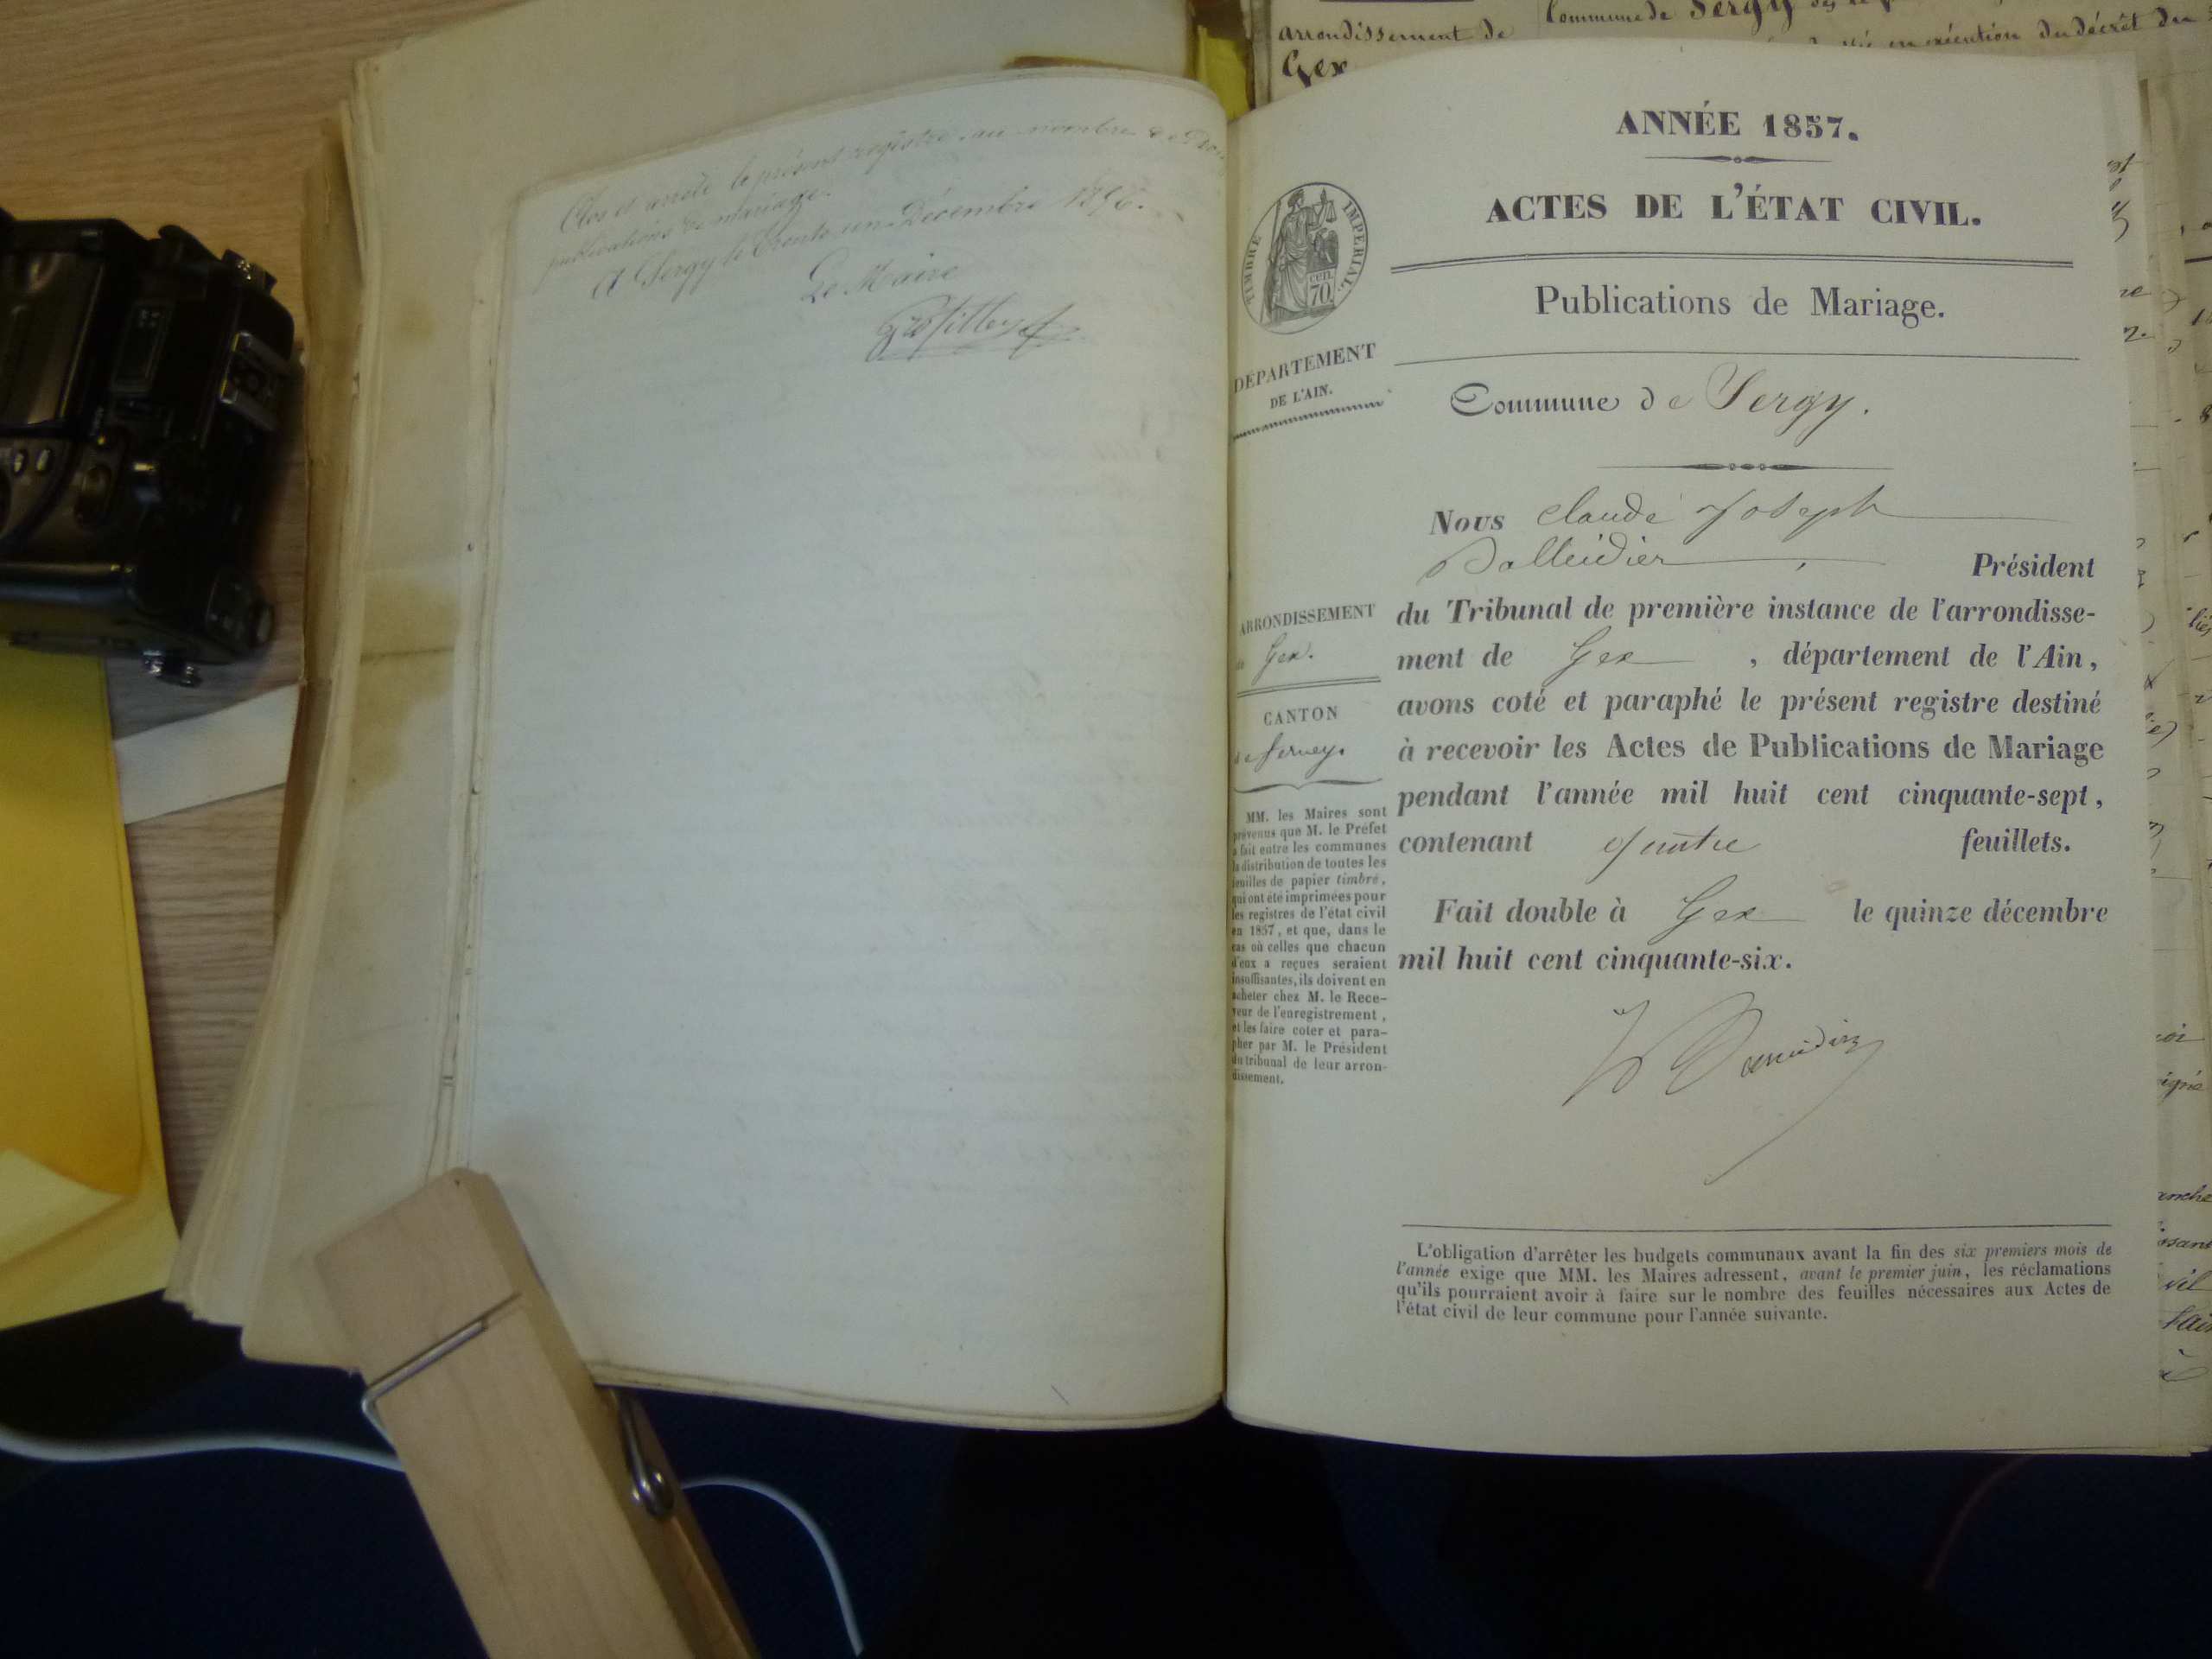 Clos et arrêté le présent registre au nombre de
publications de mariage.
A Sergy le trente un Décembre 1856.
Le Maire
arrondissement de
Gex
Commune de Sergy
en exécution du décret du
ANNÉE 1857.
ACTES DE L'ÉTAT CIVIL.
TIMBRE IMPERIAL.
CEN.
70
Publications de Mariage.
DÉPARTEMENT
DE L'AIN.
Commune de Sergy.
Nous Claude Joseph
Président
du Tribunal de première instance de l'arrondisse-
ment de Gex, département de l'Ain,
avons coté et paraphé le présent registre destiné
à recevoir les Actes de Publications de Mariage
pendant l'année mil huit cent cinquante-sept,
contenant quatre feuillets.
Fait double à Gex le quinze décembre
mil huit cent cinquante-six.
ARRONDISSEMENT
de Gex.
CANTON
de Ferney.
MM. les Maires sont
prévenus que M. le Préfet
a fait entre les communes
la distribution de toutes les
feuilles de papier timbré,
qui ont été imprimées pour
les registres de l'état civil
en 1857, et que, dans le
cas où celles que chacun
d'eux a reçues seraient
insuffisantes, ils doivent en
acheter chez M. le Rece-
veur de l'enregistrement,
et les faire coter et para-
pher par M. le Président
du tribunal de leur arron-
dissement.
L'obligation d'arrêter les budgets communaux avant la fin des six premiers mois de
l'année exige que MM. les Maires adressent, avant le premier juin, les réclamations
qu'ils pourraient avoir à faire sur le nombre des feuilles nécessaires aux Actes de
l'état civil de leur commune pour l'année suivante.